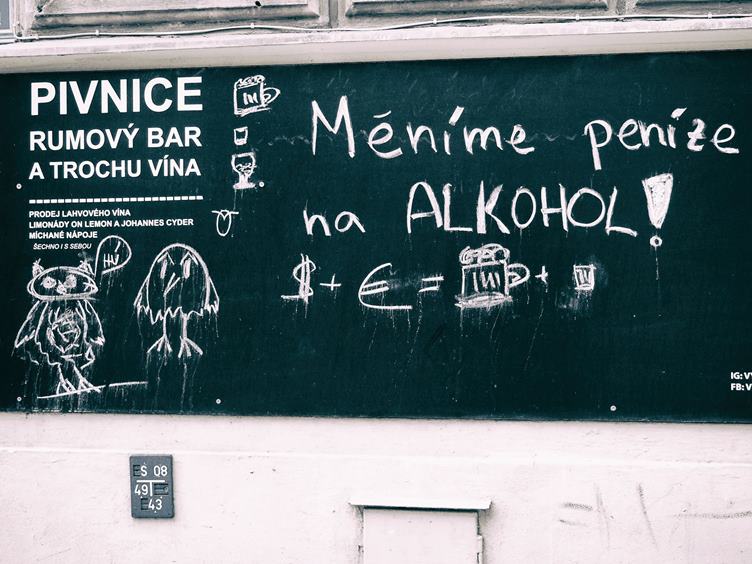 PIVNICE
RUMOVÝ BAR
A TROCHU VÍNA
PRODEJ LAHVOVÉHO VÍNA
LIMONÁDY ON LEMON A JOHANNES CYDER
MÍCHANÉ NÁPOJE
ŠECHNO I S SEBOU
HÚ
Měníme peníze
na ALKOHOL!
$ + € = +
IG: V
FB: V
Š 08
49
43